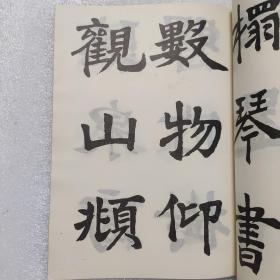 榻琴書
數物仰
觀山頫